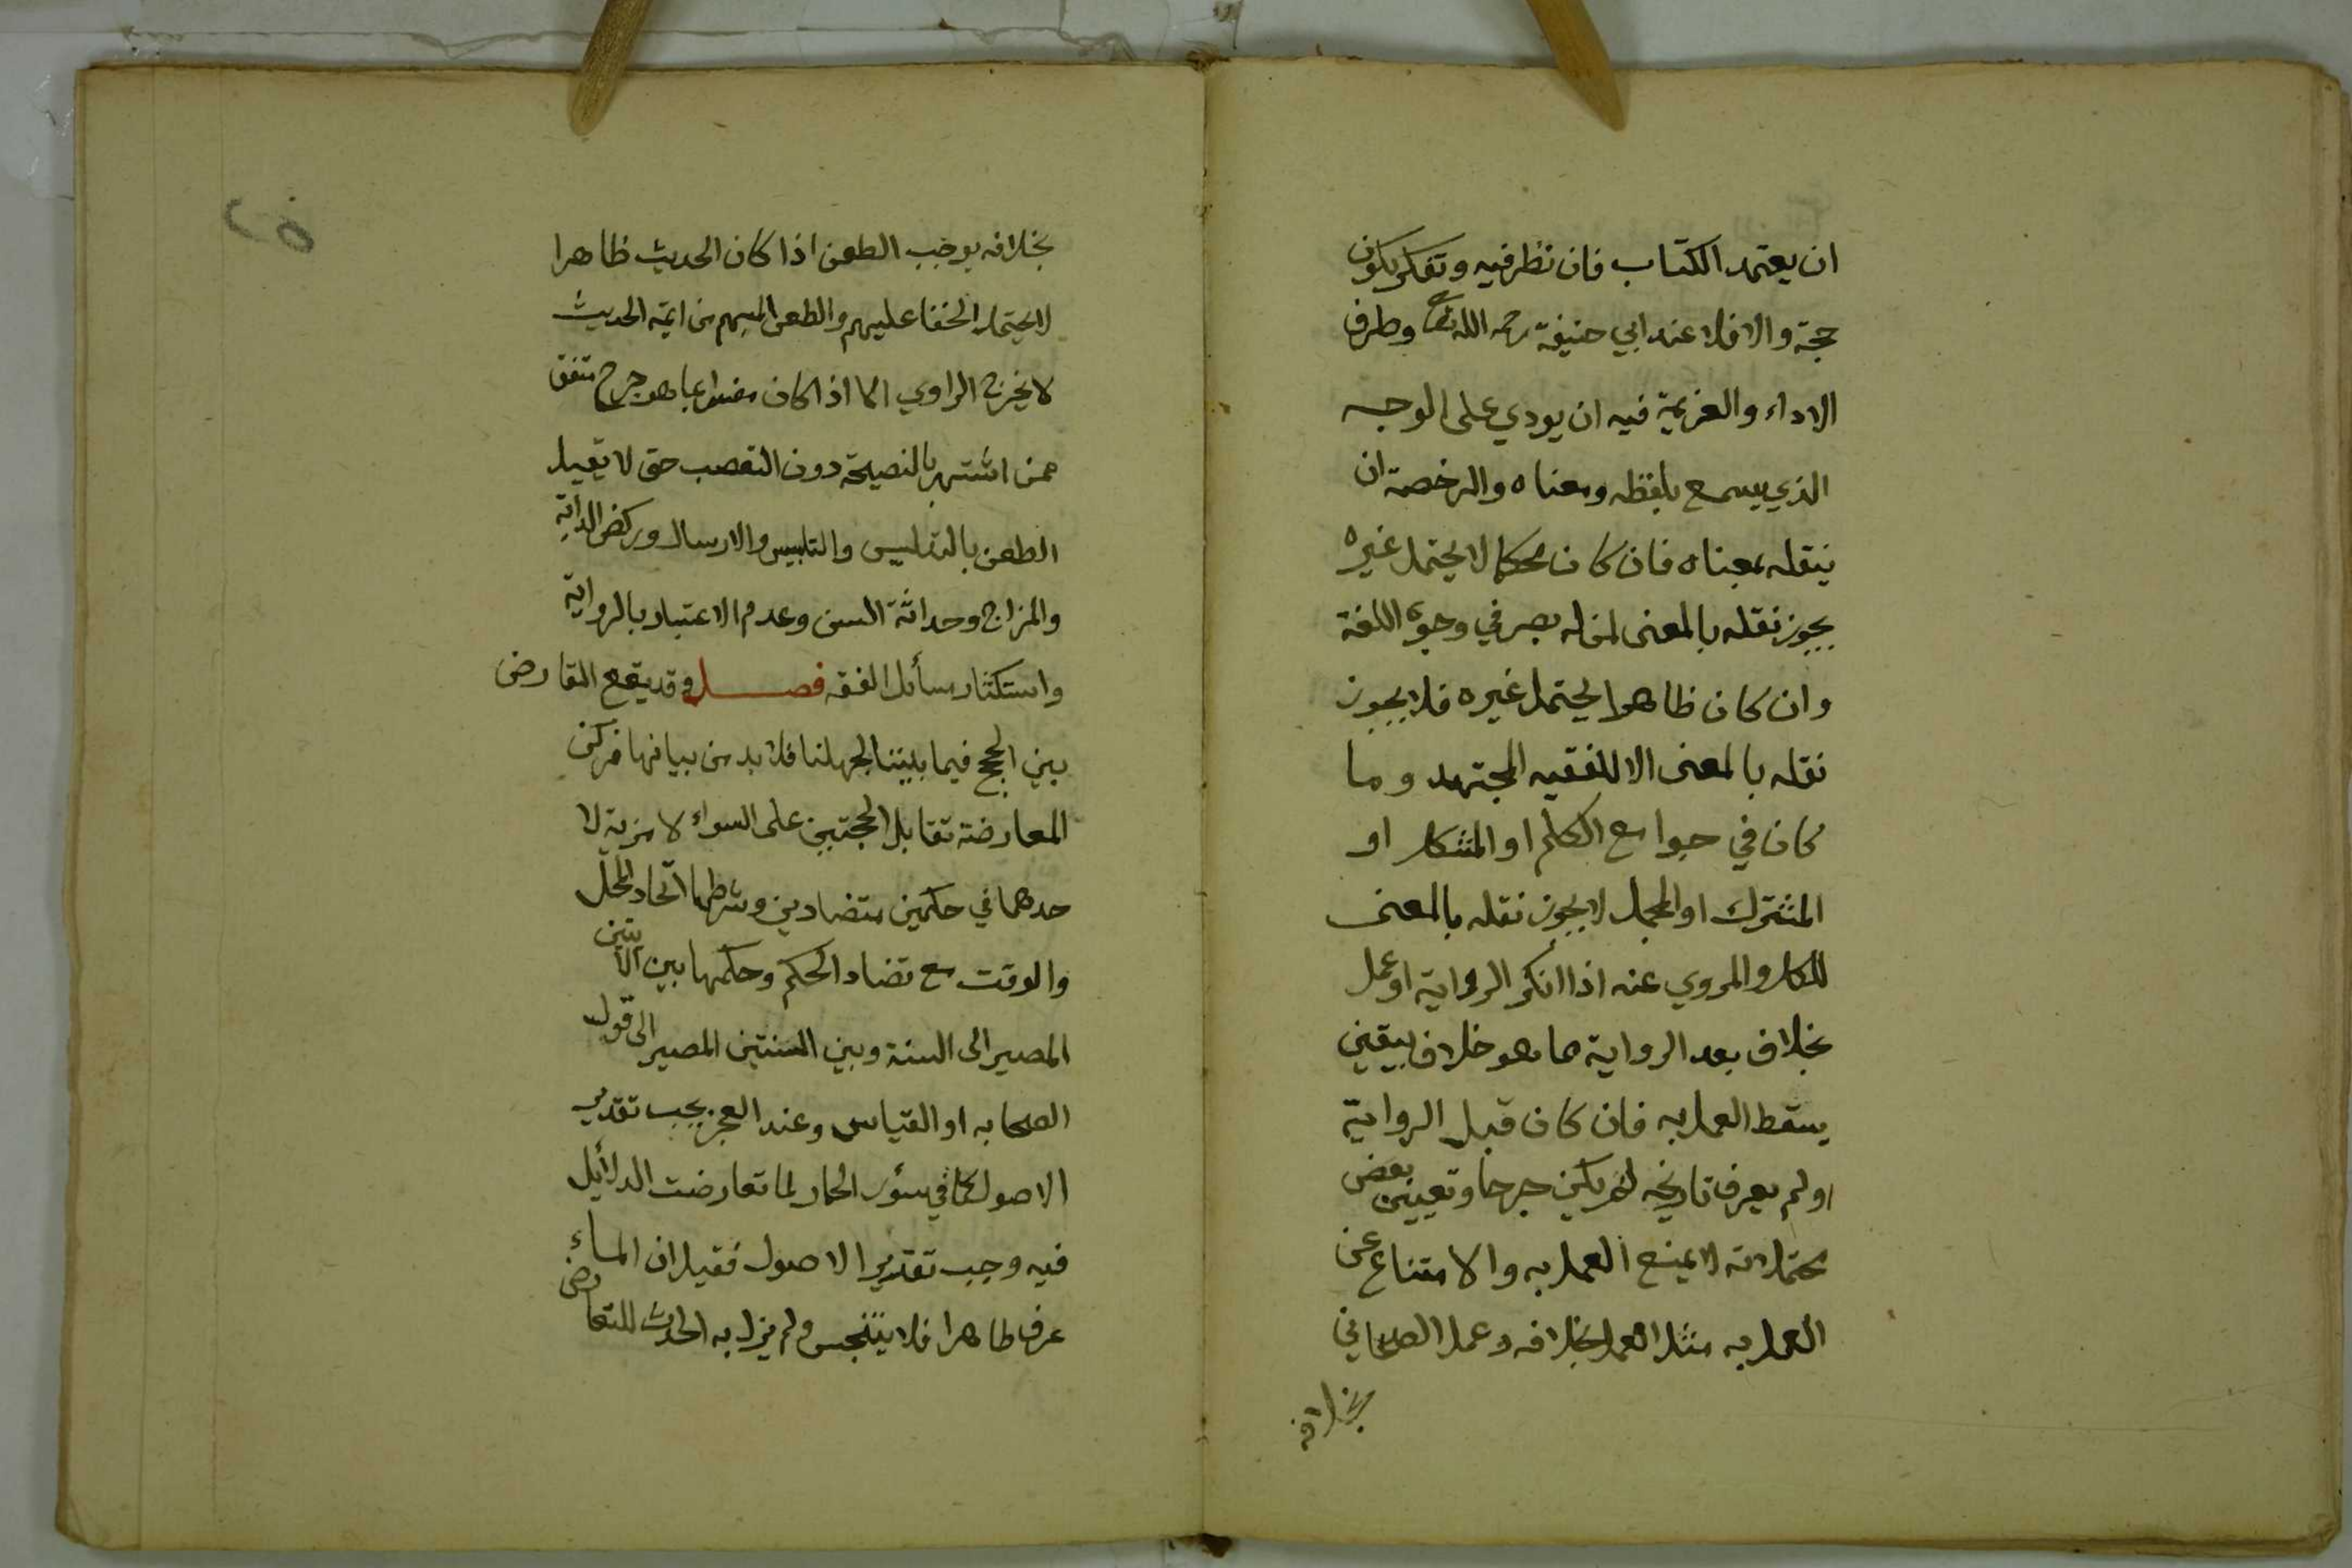 ان يعتمد الكتاب فان نظر فيه وتفكر يكون
حجة والا فلا عند ابي حنيفة رحمه الله تعا وطرف
الاداء والعزيمة فيه ان يودي على الوجه
الذي يسمع بلفظه ومعناه والرخصة ان
ينقله بمعناه فان كان محكما لا يحتمل غيره
يجوز نقله بالمعنى لمن له بصر في وجوه اللغة
وان كان ظاهرا يحتمل غيره فلا يجوز
نقله بالمعنى الا للفقيه المجتهد وما
كان في جوامع الكلم او المشكل او
المشترك او المجمل لا يجوز نقله بالمعنى
للكل والمروي عنه اذا انكر الرواية او عمل
بخلاف بعد الرواية مما هو خلاف بيقين
يسقط العمل به فان كان قبل الرواية
او لم يعرف تاريخه لم يكن جرحا وتعيين بعض
محتملاته لا يمنع العمل به والامتناع عن
العمل به مثل العمل بخلافه وعمل الصحابي
بخلافه
٢٥
بخلافه يوجب الطعن اذا كان الحديث ظاهرا
لا يحتمل الخفا عليهم والطعن المبهم من ائمة الحديث
لا يخرج الراوي الا اذا كان مفسرا بما هو جرح متفق
ممن اشتهر بالنصيحة دون التعصب حتى لا يقبل
الطعن بالتدليس والتلبيس والارسال وركض الدابة
والمزاح وحداثة السن وعدم الاعتبار بالرواية
واستكثار مسائل الفقه فصل وقد يقع التعارض
بين الحجج فيما بيننا لجهلنا فلا بد من بيانها فركن
المعارضة تقابل الحجتين على السواء لا مزية لا
حدهما في حكمين متضادين وشرطها اتحاد المحل
والوقت مع تضاد الحكم وحكمها بين الآيتين
المصير الى السنة وبين السنتين المصير الى قول
الصحابه او القياس وعند العجز يجب تقرير
الاصول كما في سؤر الحمار لما تعارضت الدلائل
فيه وجب تقرير الاصول فقيل ان الماء
عرف طاهرا فلا يتنجس ولم يزل به الحدث للتعارض